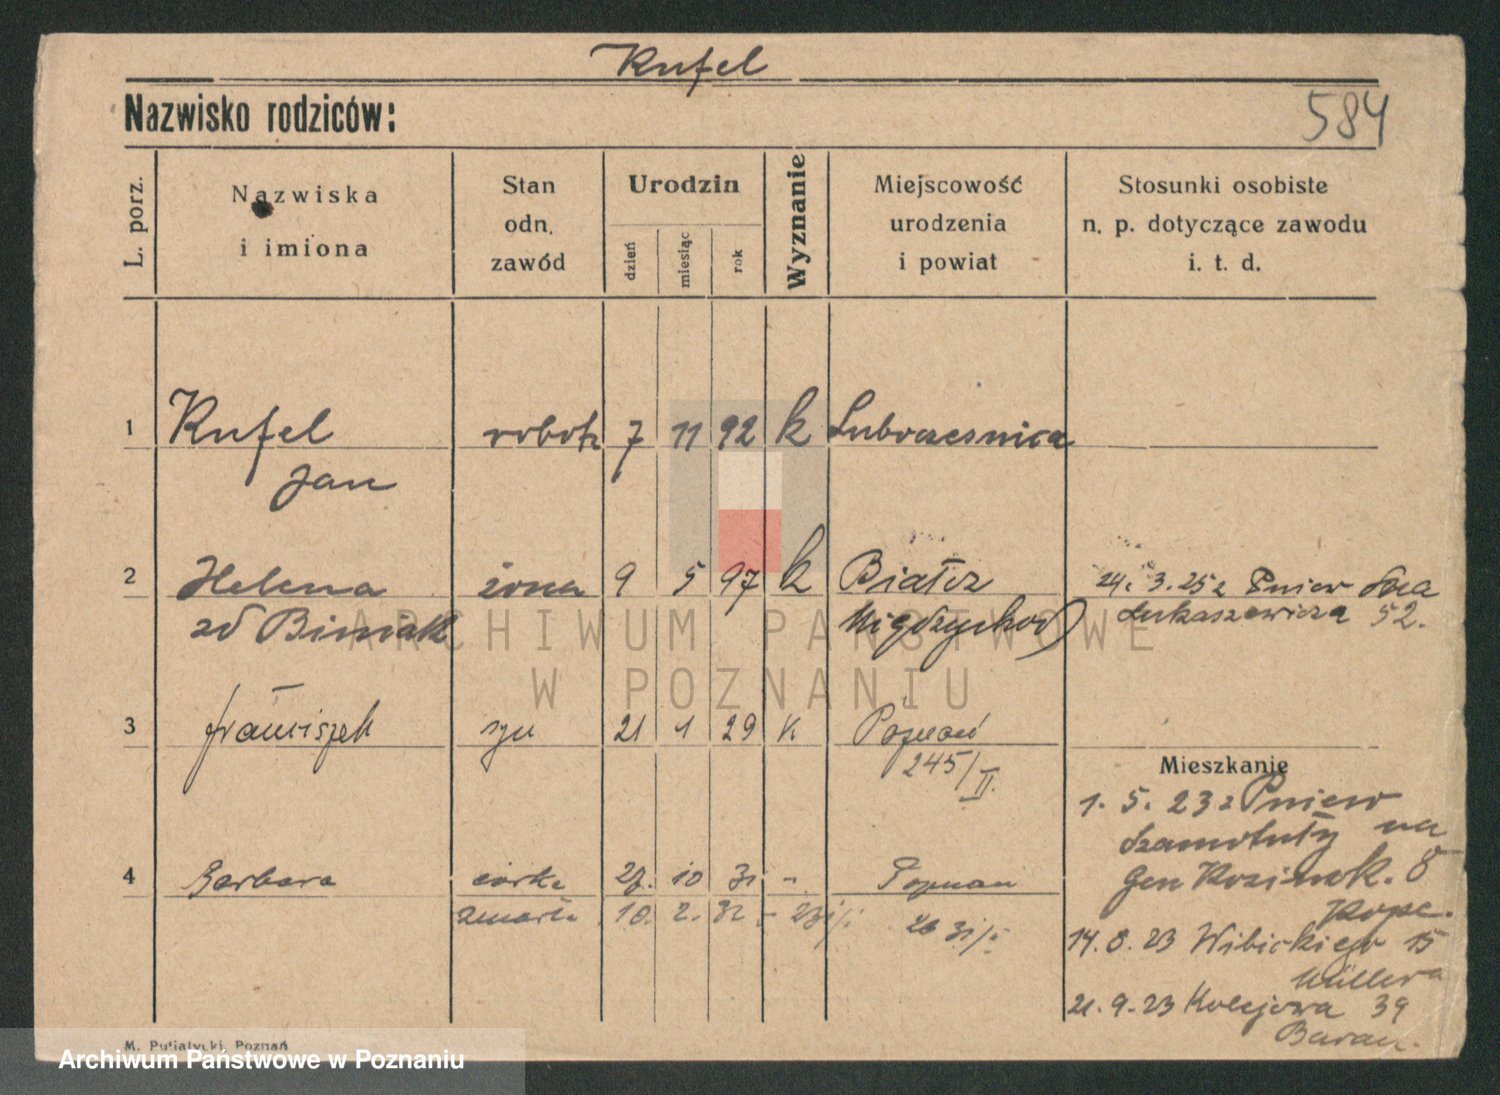 Kufel
Nazwisko rodziców:
584
L. porz.
Nazwiska
i imiona
Stan
odn.
zawód
Urodzin
dzień
miesiąc
rok
Wyznanie
Miejscowość
urodzenia
i powiat
Stosunki osobiste
n. p. dotyczące zawodu
i. t. d.
1 Kufel robotn 7 11 92 k Lubrzesnica
Jan
2 Helena żona 9 5 97 k Białcz 24. 3. 25 z Pniew
zd Bimak Międzychod Łukaszewicza 52.
3 Franciszek syn 21 1 29 k Poznań
245/II.
Mieszkanie
1. 5. 23 z Pniew
Szamotuły na
4 Barbara córka 27. 10 31 - Poznan Gen 8
zmarła 10. 2. 32
14. 8. 23 Wibickiego 15
Müllera
21. 9. 23 Kolejowa 39
Baran.
M. Putiatycki, Poznań
ARCHIWUM PAŃSTWOWE
W POZNANIU
Archiwum Państwowe w Poznaniu